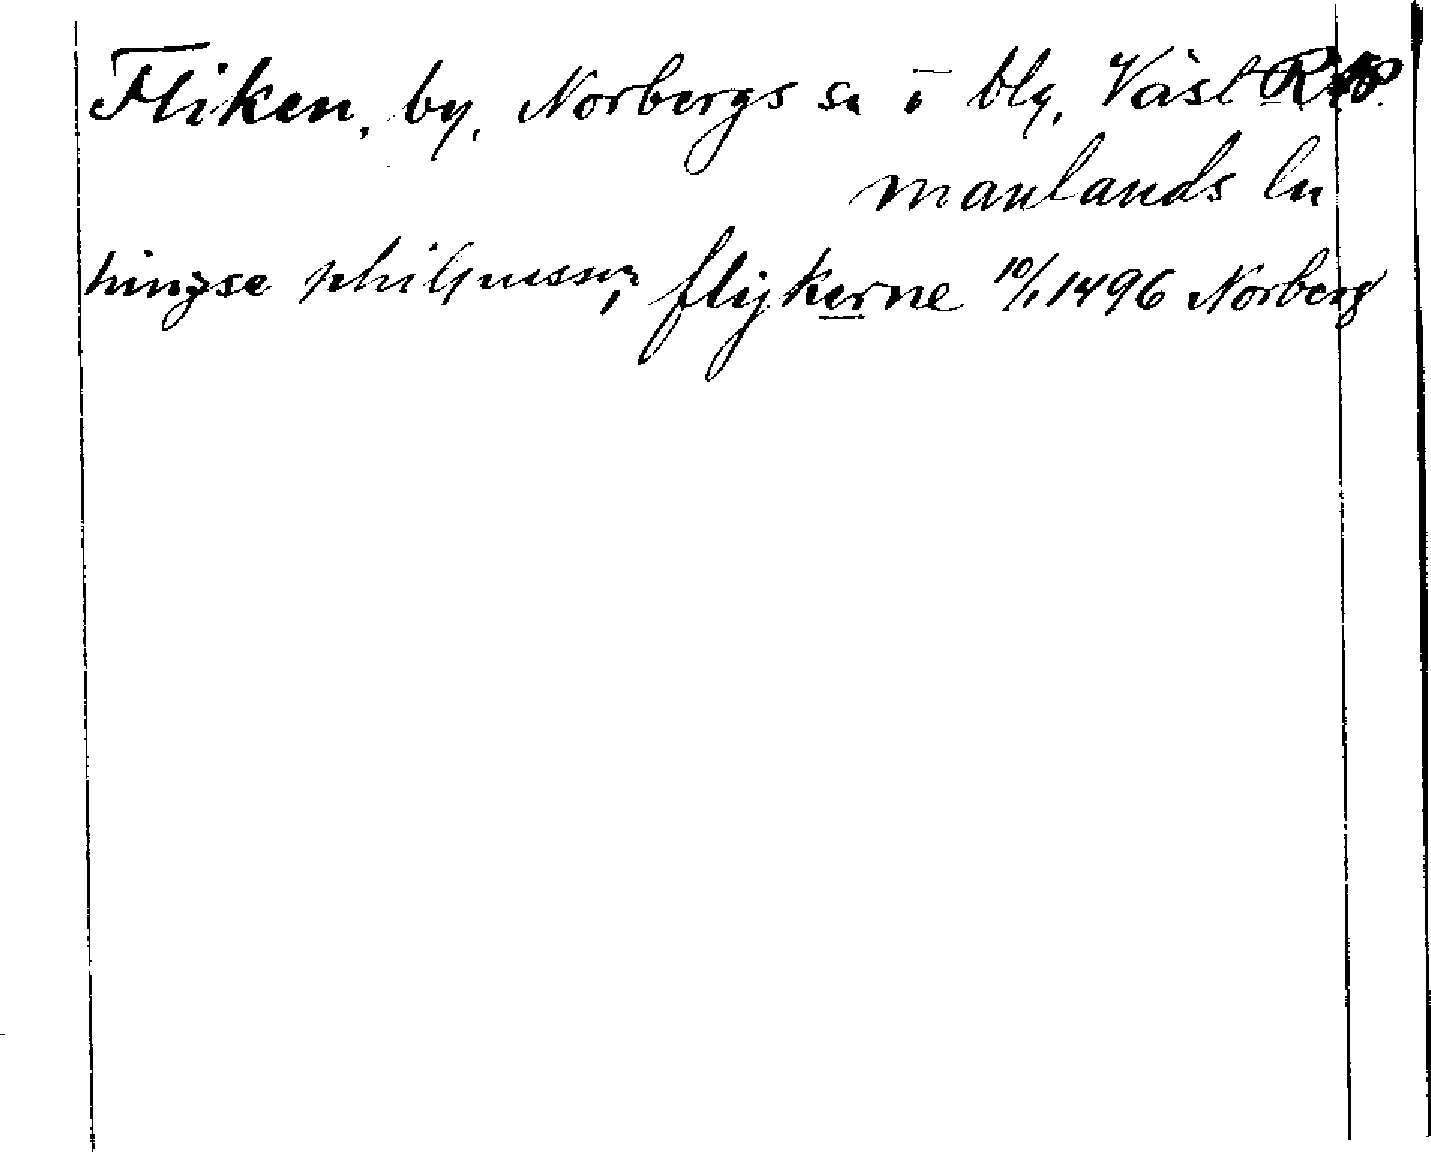 Fliken, by, Norbergs sn i blg, Väst
manlands ln
hingse philpusson, flijkerne 10/1 1496 Norberg